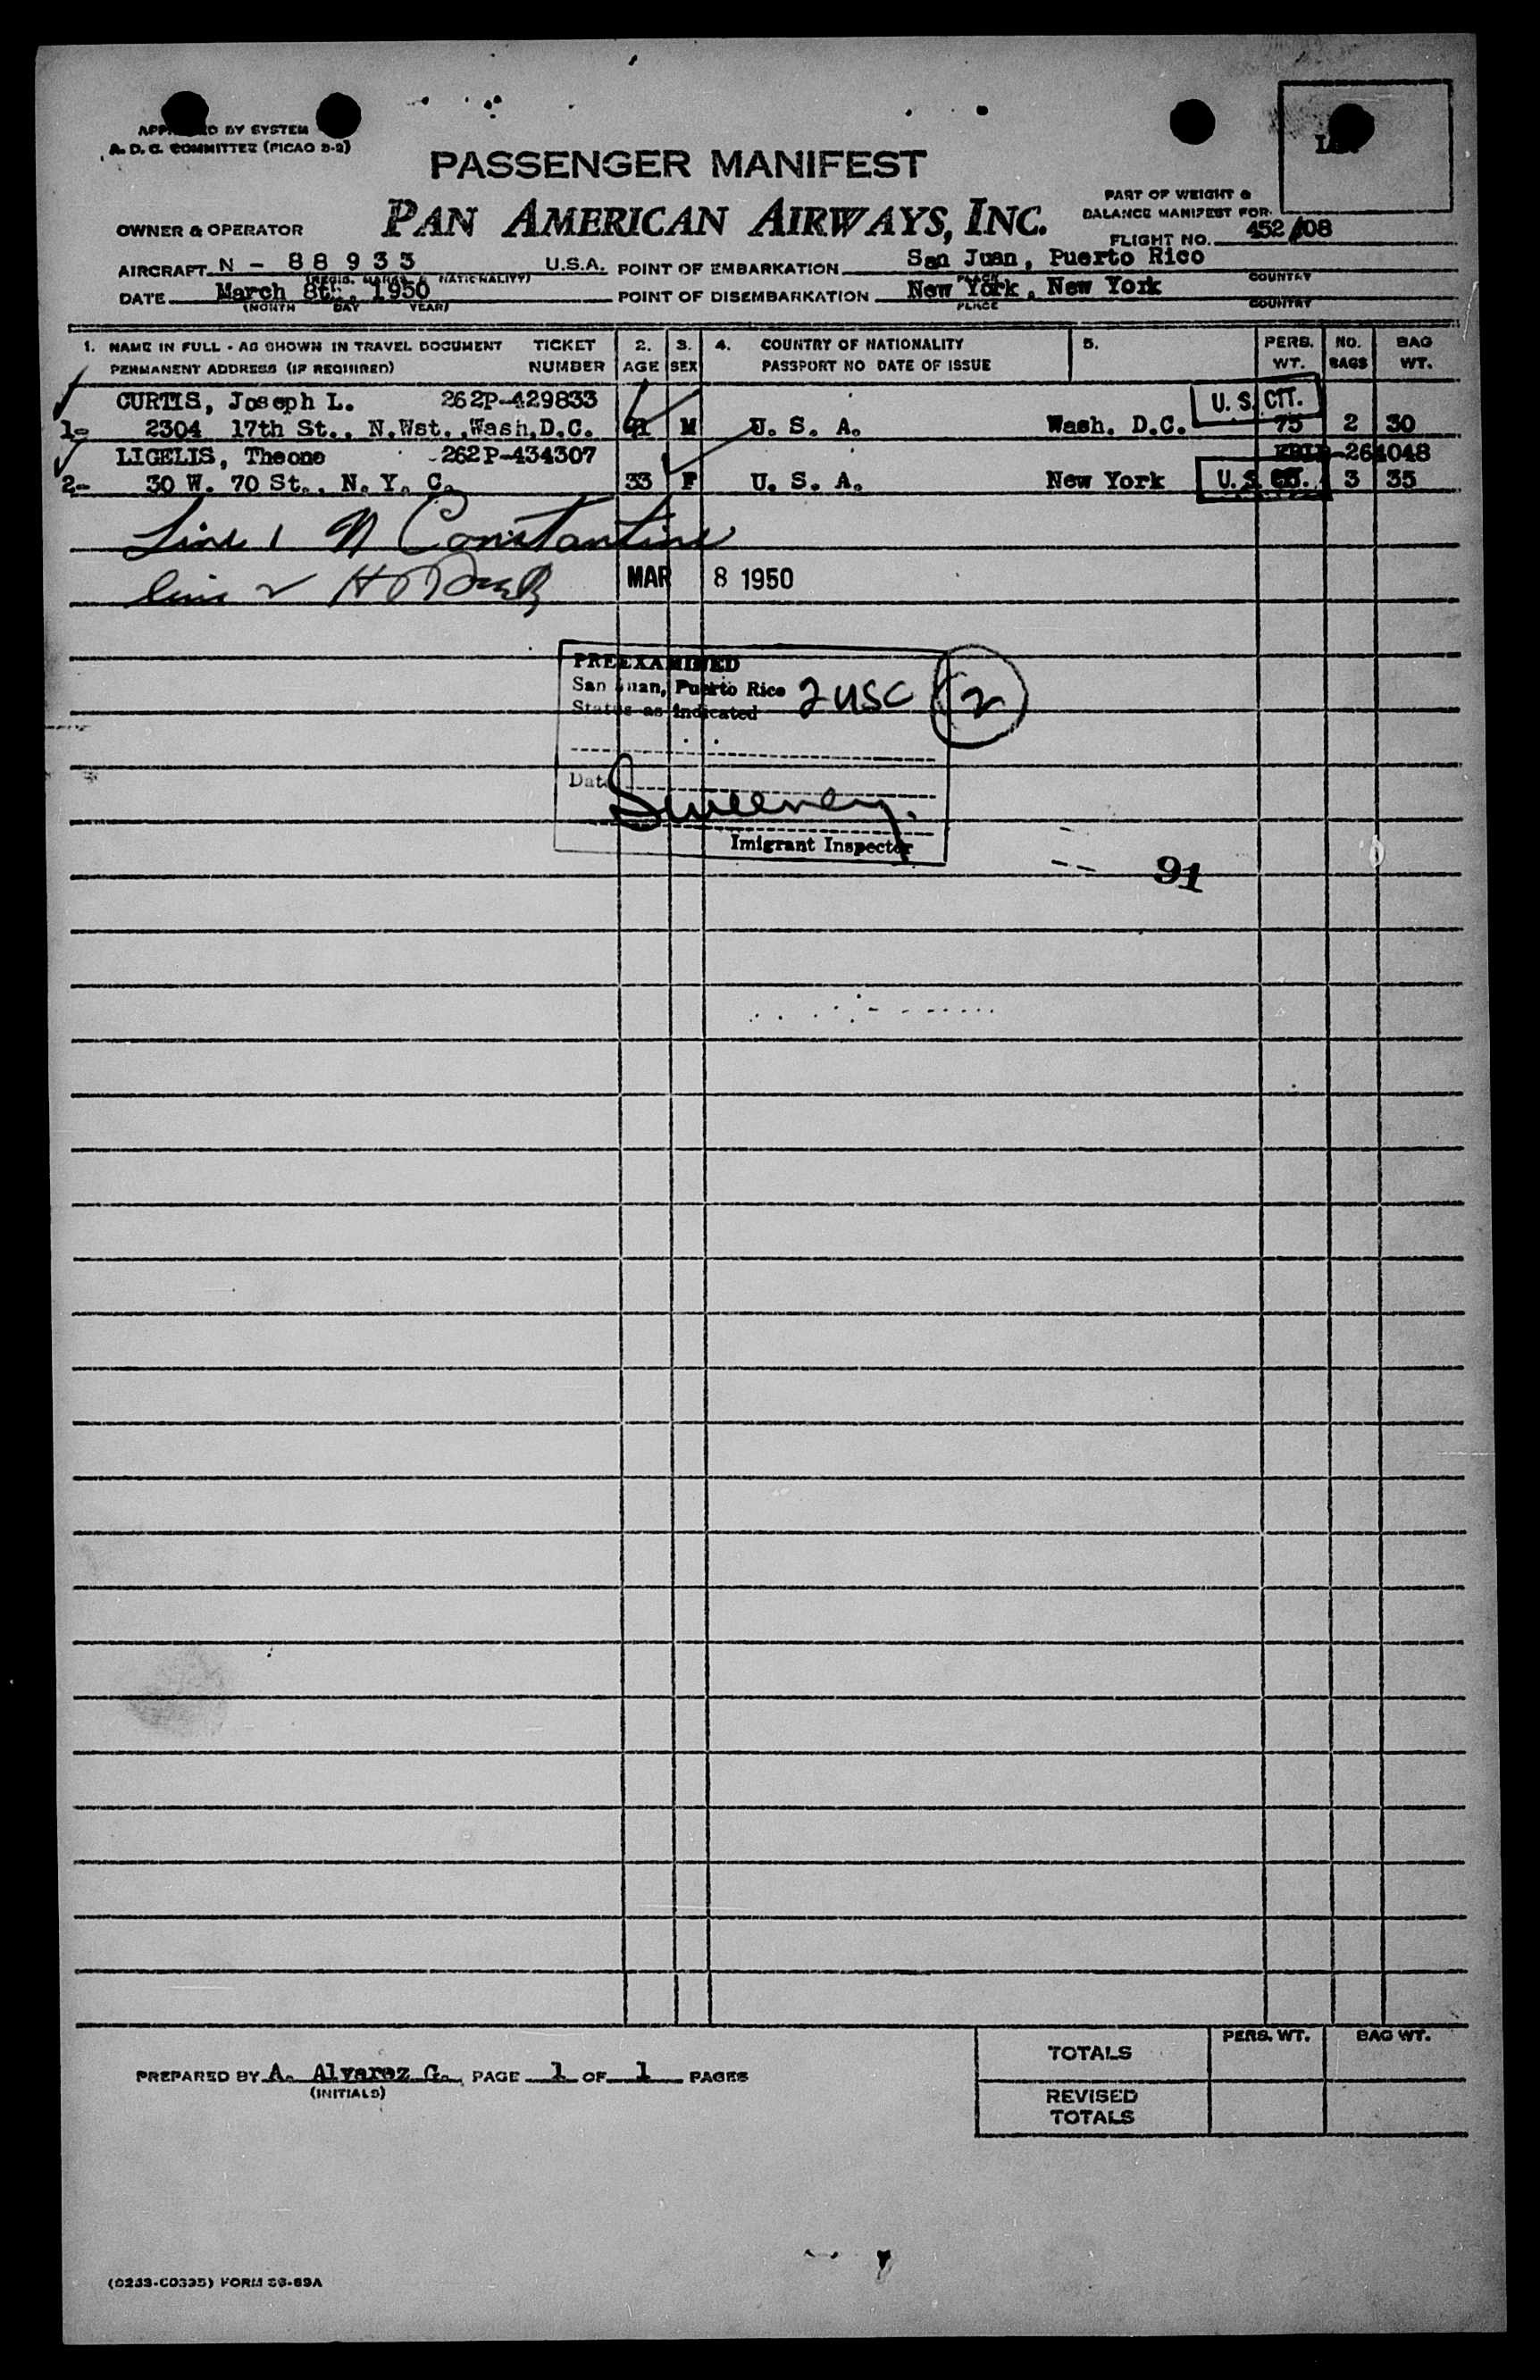 APPROVED BY SYSTEM
A. D. C. COMMITTEE (PICAO 8-2)
PASSENGER MANIFEST
PART OF WEIGHT &
BALANCE MANIFEST FOR
OWNER & OPERATOR PAN AMERICAN AIRWAYS, INC.
FLIGHT NO. 452/08
AIRCRAFT N - 88933 U.S.A. POINT OF EMBARKATION San Juan, Puerto Rico
(REGIS. MARKS & NATIONALITY) PLACE COUNTRY
DATE March 8th, 1950 POINT OF DISEMBARKATION New York, New York
(MONTH DAY YEAR) PLACE COUNTRY
1. NAME IN FULL - AS SHOWN IN TRAVEL DOCUMENT TICKET 2. 3. 4. COUNTRY OF NATIONALITY 5. PERS. NO. BAG
PERMANENT ADDRESS (IF REQUIRED) NUMBER AGE SEX PASSPORT NO DATE OF ISSUE WT. BAGS WT.
CURTIS, Joseph L. 262P-429833 U. S. CIT.
1- 2304 17th St., N.Wst.,Wash,D.C. M U. S. A. Wash. D.C. 75 2 30
LIGELIS, Theone 262P-434307 -264048
2- 30 W. 70 St., N. Y. C. 33 F U. S. A. New York U. S. 3 35
Line 1 N Constantine
line 2 H
MAR 8 1950
PREEXAMINED
San Juan, Puerto Rico 2 USC 2
Status as indicated
Date
Sweeney.
Imigrant Inspector
91
TOTALS PERS. WT. BAG WT.
PREPARED BY A. Alvarez G. PAGE 1 OF 1 PAGES
(INITIALS)
REVISED
TOTALS
FORM 36-69A